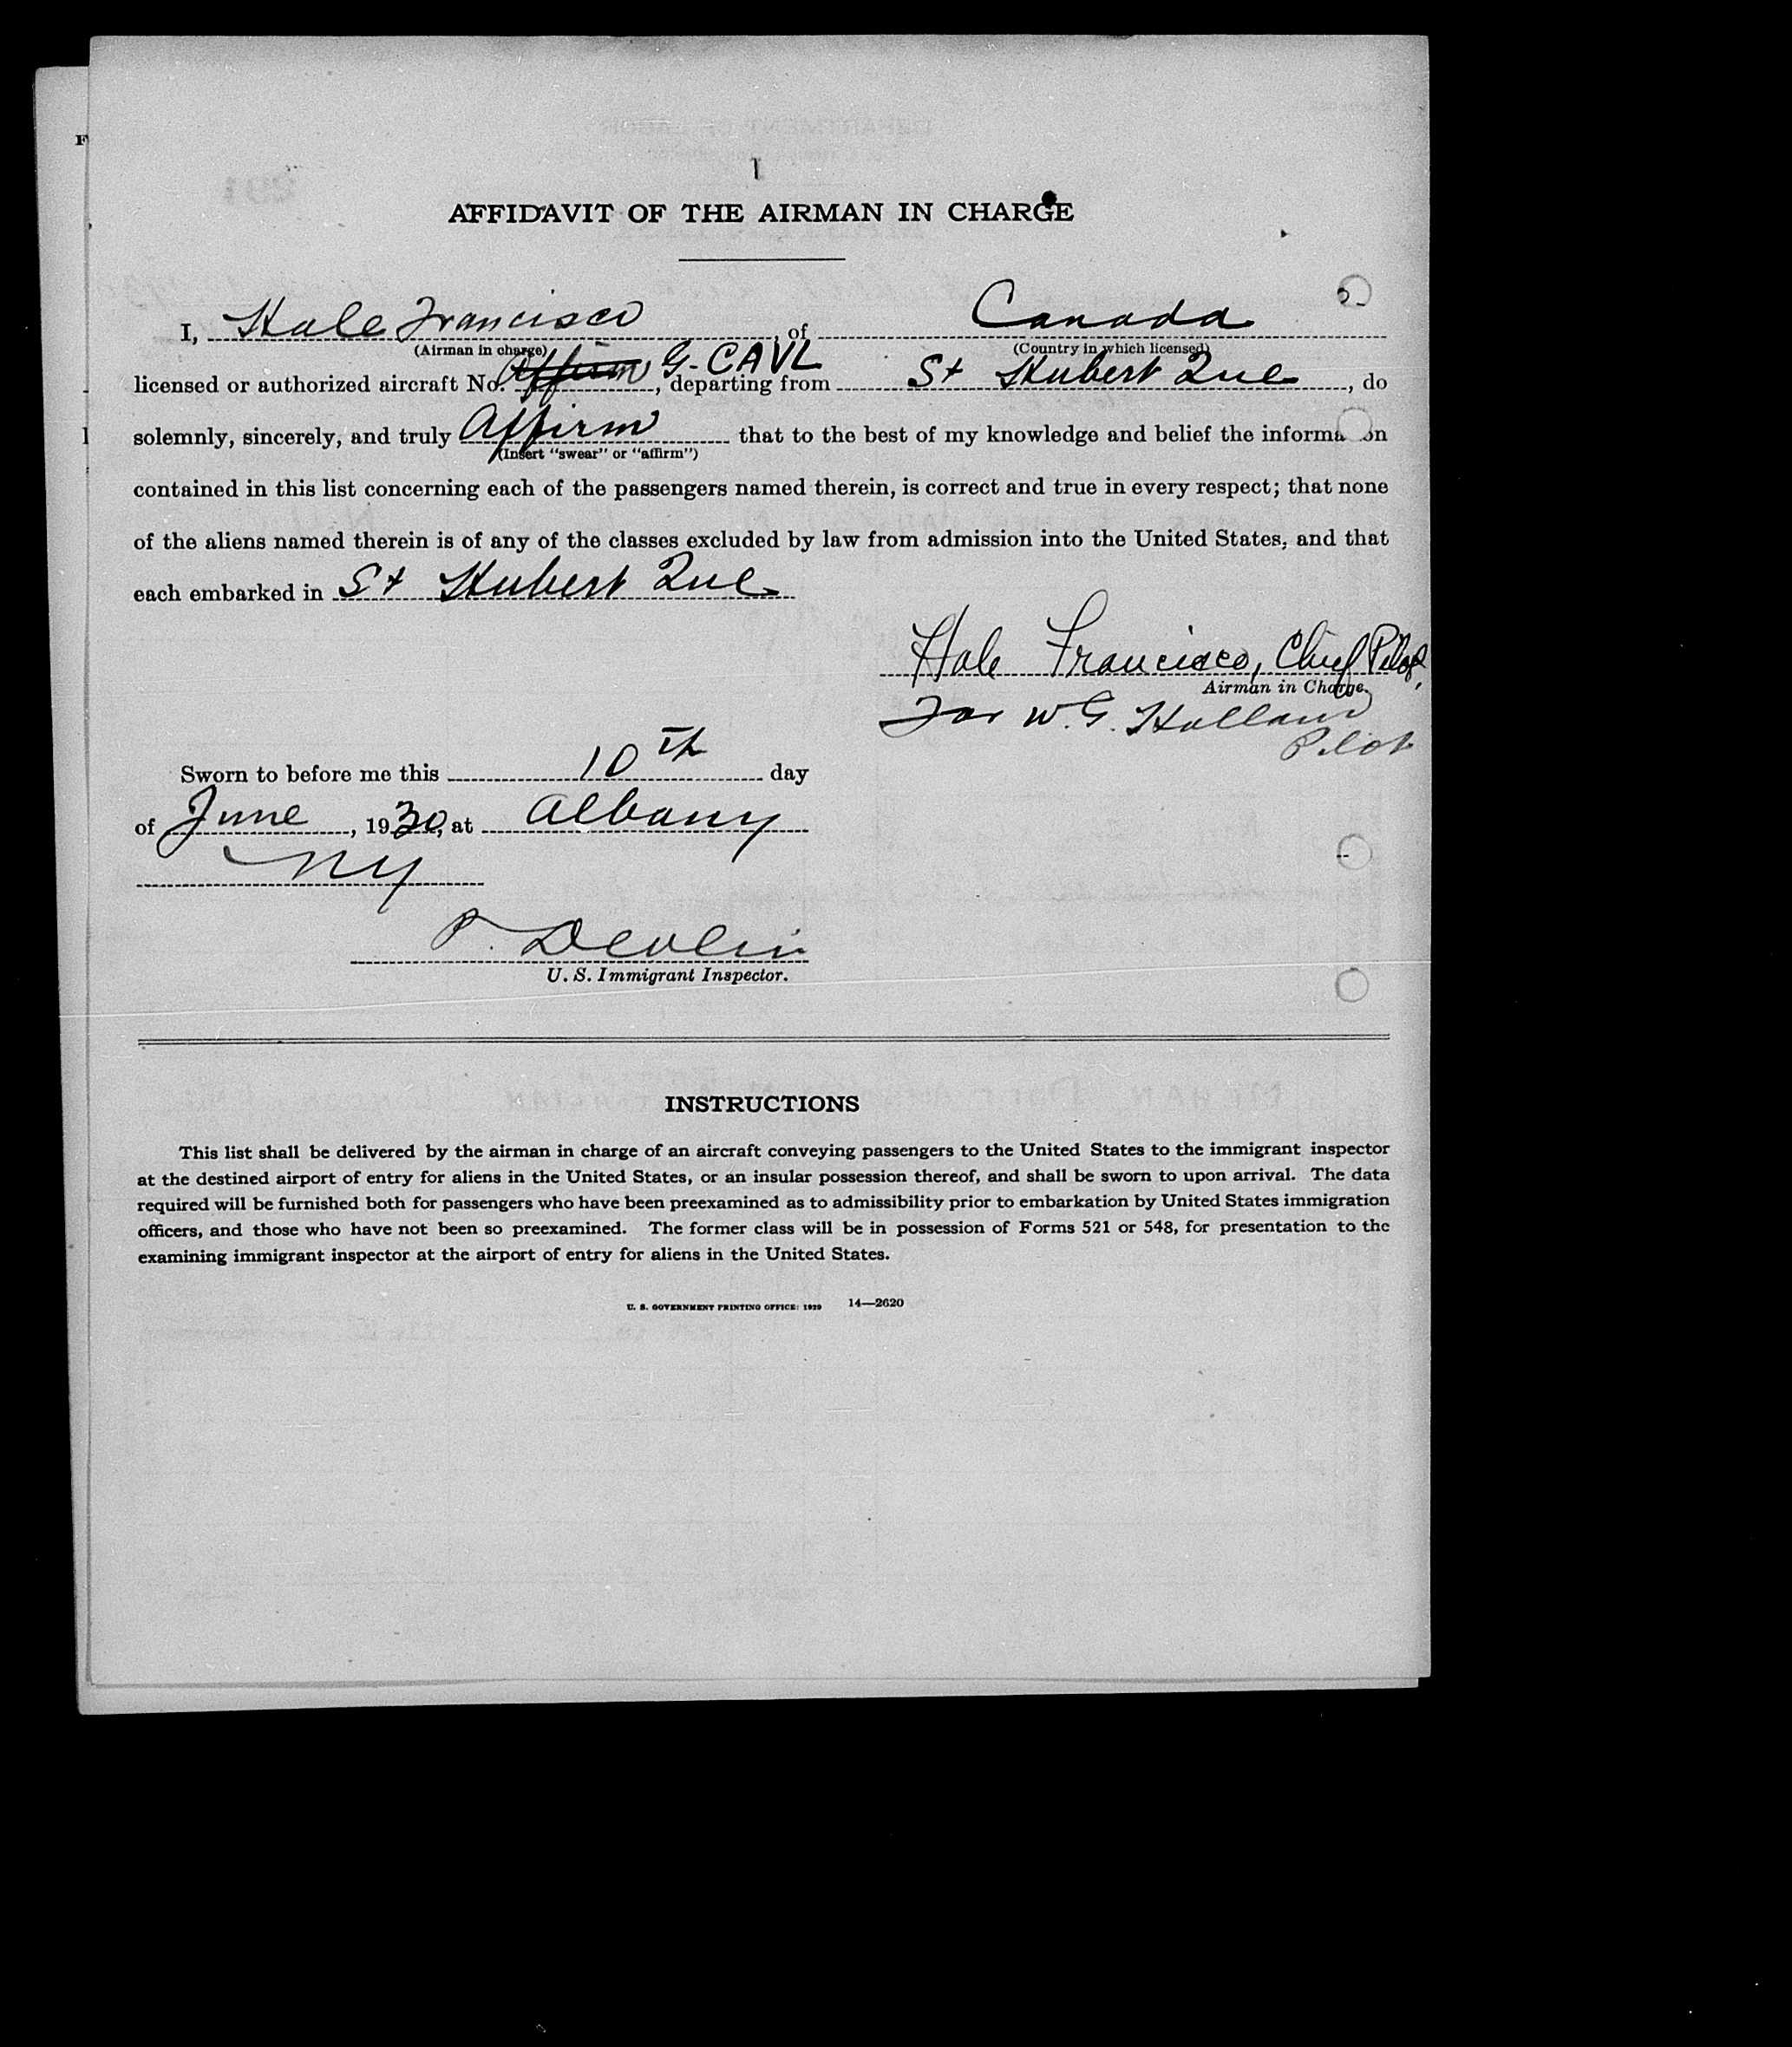 F
1
AFFIDAVIT OF THE AIRMAN IN CHARGE
I, Hale Francisco, of Canada
(Airman in charge) (Country in which licensed)
licensed or authorized aircraft No. Affirm G-CAVL, departing from St Hubert Que, do
solemnly, sincerely, and truly Affirm that to the best of my knowledge and belief the information
(Insert "swear" or "affirm")
contained in this list concerning each of the passengers named therein, is correct and true in every respect; that none
of the aliens named therein is of any of the classes excluded by law from admission into the United States, and that
each embarked in St Hubert Que
Hale Francisco, Chief Pilot,
Airman in Charge.
For W.G. Holland
Pilot
Sworn to before me this 10th day
of June, 1930, at Albany
NY
P. Devlin
U. S. Immigrant Inspector.
INSTRUCTIONS
This list shall be delivered by the airman in charge of an aircraft conveying passengers to the United States to the immigrant inspector
at the destined airport of entry for aliens in the United States, or an insular possession thereof, and shall be sworn to upon arrival. The data
required will be furnished both for passengers who have been preexamined as to admissibility prior to embarkation by United States immigration
officers, and those who have not been so preexamined. The former class will be in possession of Forms 521 or 548, for presentation to the
examining immigrant inspector at the airport of entry for aliens in the United States.
U. S. GOVERNMENT PRINTING OFFICE: 1929 14—2620